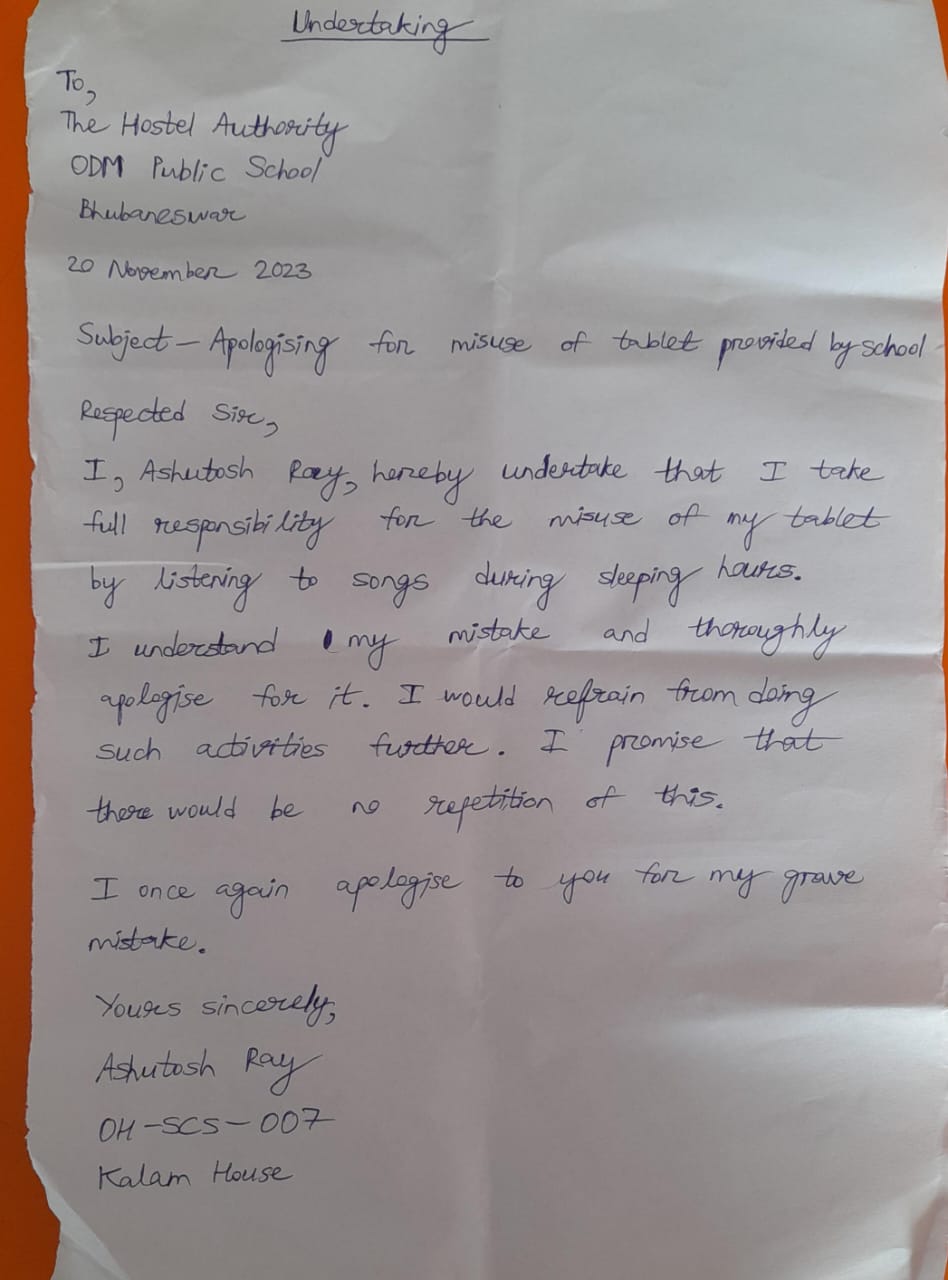 Undertaking
To,
The Hostel Authority
ODM Public School
Bhubaneswar
20 November 2023
Subject - Apologising for misuse of tablet provided by school
Respected Sir,
I, Ashutosh Ray, hereby undertake that I take
full responsibility for the misuse of my tablet
by listening to songs during sleeping hours.
I understand my mistake and thoroughly
apologise for it. I would refrain from doing
such activities further. I promise that
there would be no repetition of this.
I once again apologise to you for my grave
mistake.
Yours sincerely,
Ashutosh Ray
OH-SCS-007
Kalam House